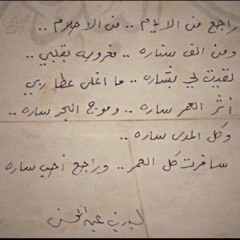 راجع من الايام .. من الاحلام ..
ومن الف ستاره .. مغروسه بقلبي ..
لقيت لي بشاره .. ما اغلى عطا ربي
أثر العمر ساره .. وموج البحر ساره ..
وكل المدى ساره ..
سافرت كل العمر .. وراجع أحب ساره
بدر بن عبدالمحسن